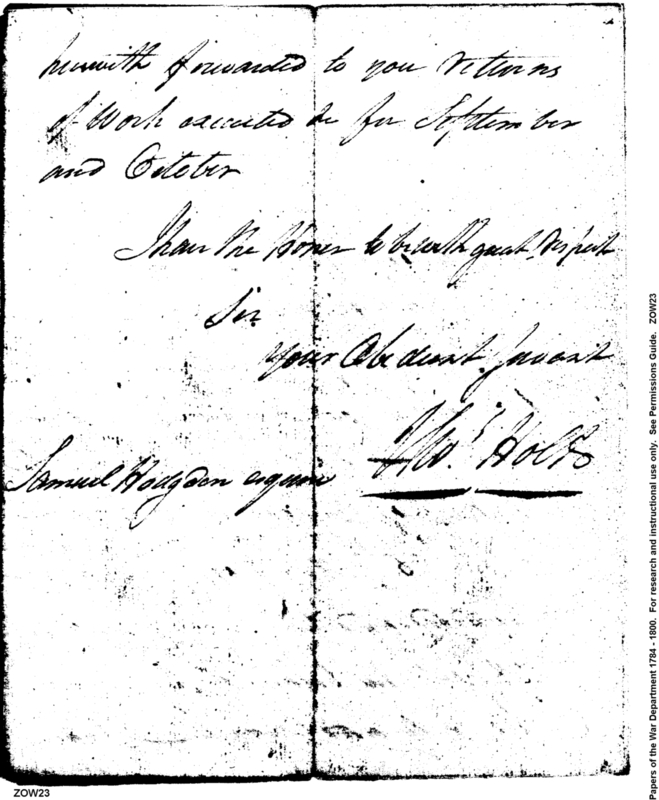 herewith forwarded to you returns
of Work executed &c for September
and October
I have the Honor to be with great Respect
Sir
your Obedient Servant
Thos. Holt
Samuel Hodgdon esquire
Papers of the War Department 1784 - 1800. For research and instructional use only. See Permissions Guide. ZOW23
ZOW23